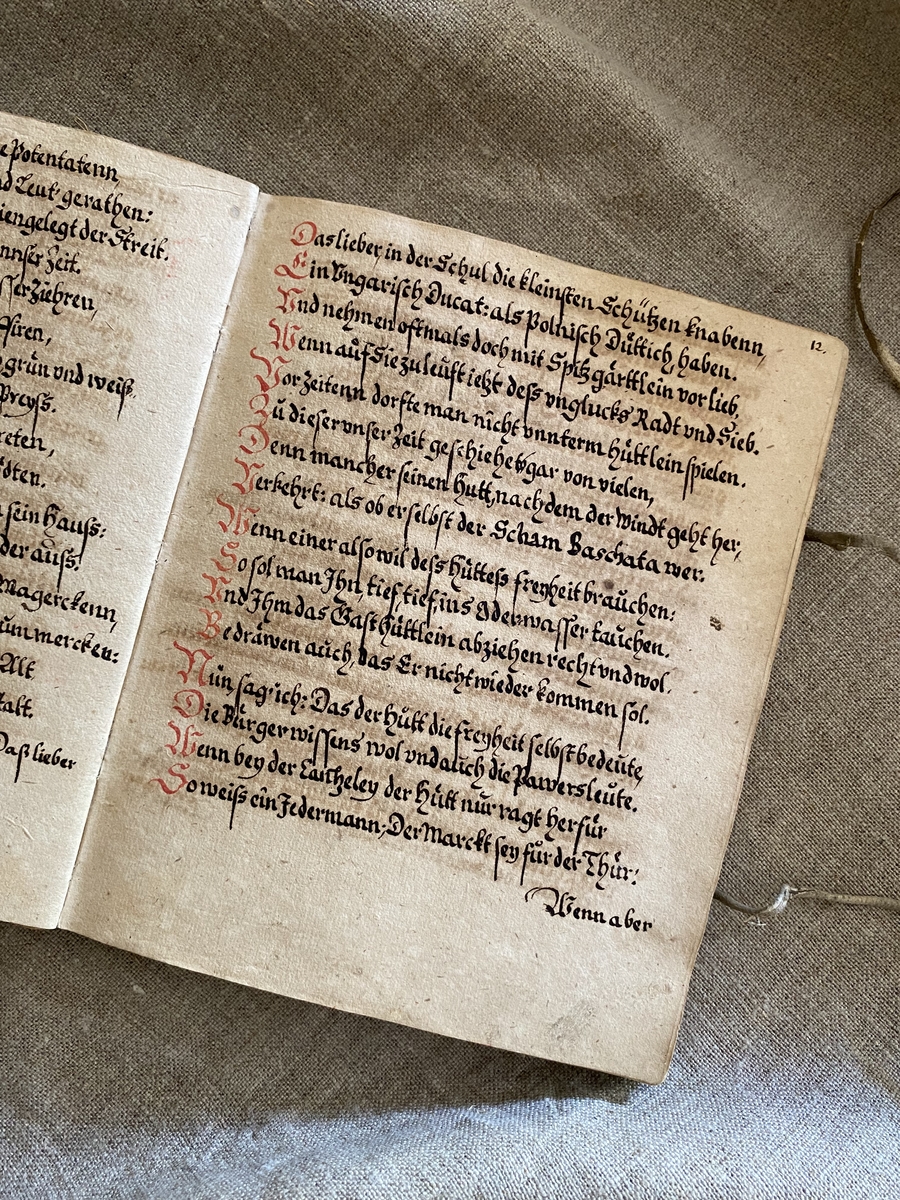 e Potentatenn,
nd Leut' gerathen:
iengelegt der Streit.
nnser Zeit.
sser Ziehren,
ffiren,
grün vnd weiß.
Preyß.
reten,
dten.
sein Hauß:
der auß.
Magerckenn,
um mercken:
Alt
talt.
Daß lieber
12.
Das lieber, in der Schul die kleinsten Schützen knabenn,
Ein Vngarisch Ducat: als Polnisch Düttich, haben.
Vnd nehmen oftmals doch mit Spitzgärttlein vorlieb,
Wenn auf Sie zu leuft ietzt deß vnglucks Radt vnd Sieb.
Vor Zeitenn dorfte man nicht vnnterm hüttlein spielen.
Zu dieser vnser Zeit geschiehets gar von vielen,
Denn mancher seinen hutt, nach dem der Windt geht her,
Verkehrt: als ob er selbst der Scham Baschata wer.
Wenn einer also wil deß hütteß freyheit brauchen:
So sol man Ihn, tief, tief, ins Oderwasser tauchen.
Vnd Ihm das Gasthüttlein abziehen recht vnd wol.
Bedräwen auch, das Er nicht wieder kommen sol.
Nun, sag' ich: Das der hutt die freyheit selbst bedeute,
Die Bürger wissens wol vnd auch die Pawersleute.
Wenn bey der der hutt nur ragt herfür
So weiß ein Jedermann, Der Marckt sey für der Thür:
Wenn aber